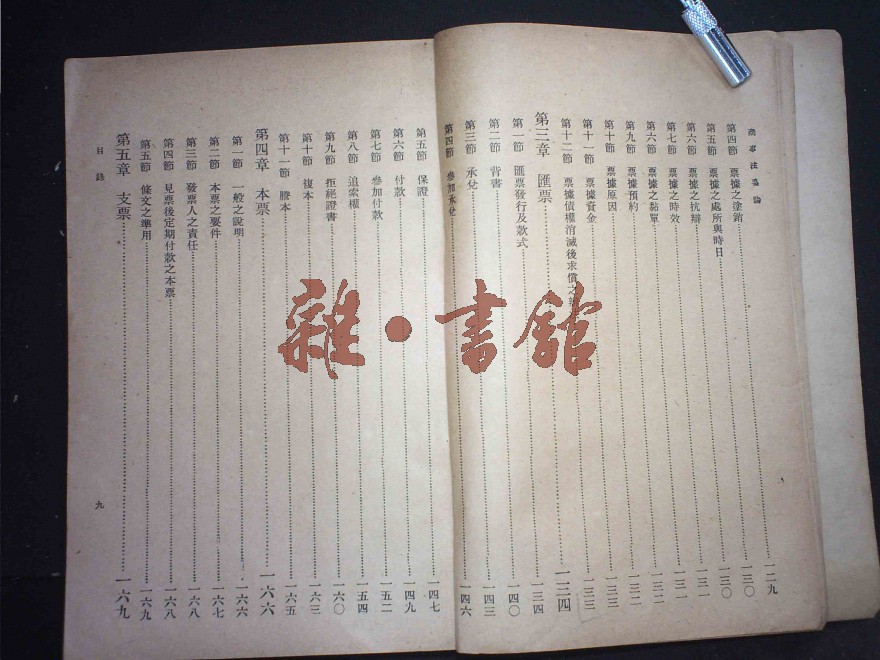 第四節 票據之塗銷 一二九
第五節 票據之處所與時日 一三〇
第六節 票據之抗辯 一三〇
第七節 票據之時效 一三一
第六節 票據之黏單 一三一
第九節 票據預約 一三二
第十節 票據原因 一三二
第十一節 票據資金 一三三
第十二節 票據債權消滅後求償之 一三三
第三章 匯票 一二四
第一節 匯票發行及款式 一三四
第二節 背書 一四〇
第三節 承兌 一四三
第四節 參加承兌 一四六
第五節 保證 一四七
第六節 付款 一四九
第七節 參加付款 一五二
第八節 追索權 一五四
第九節 拒絕證書 一六〇
第十節 複本 一六三
第十一節 謄本 一六五
第四章 本票 一六六
第一節 一般之說明 一六六
第二節 本票之要件 一六七
第三節 發票人之責任 一六八
第四節 見票後定期付款之本票 一六八
第五節 條文之準用 一六九
第五章 支票 一六九
目錄
九
雜·書館